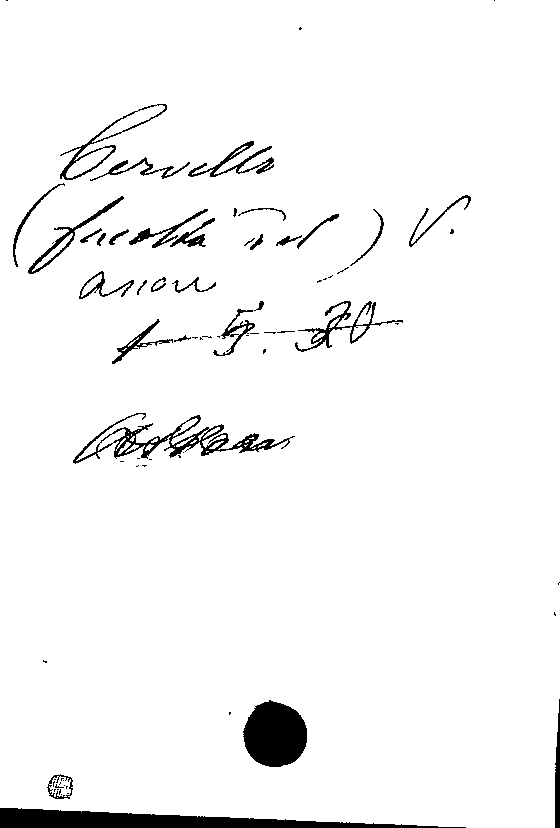 Cervello
(facoltà del) V.
anon
1 5. 30